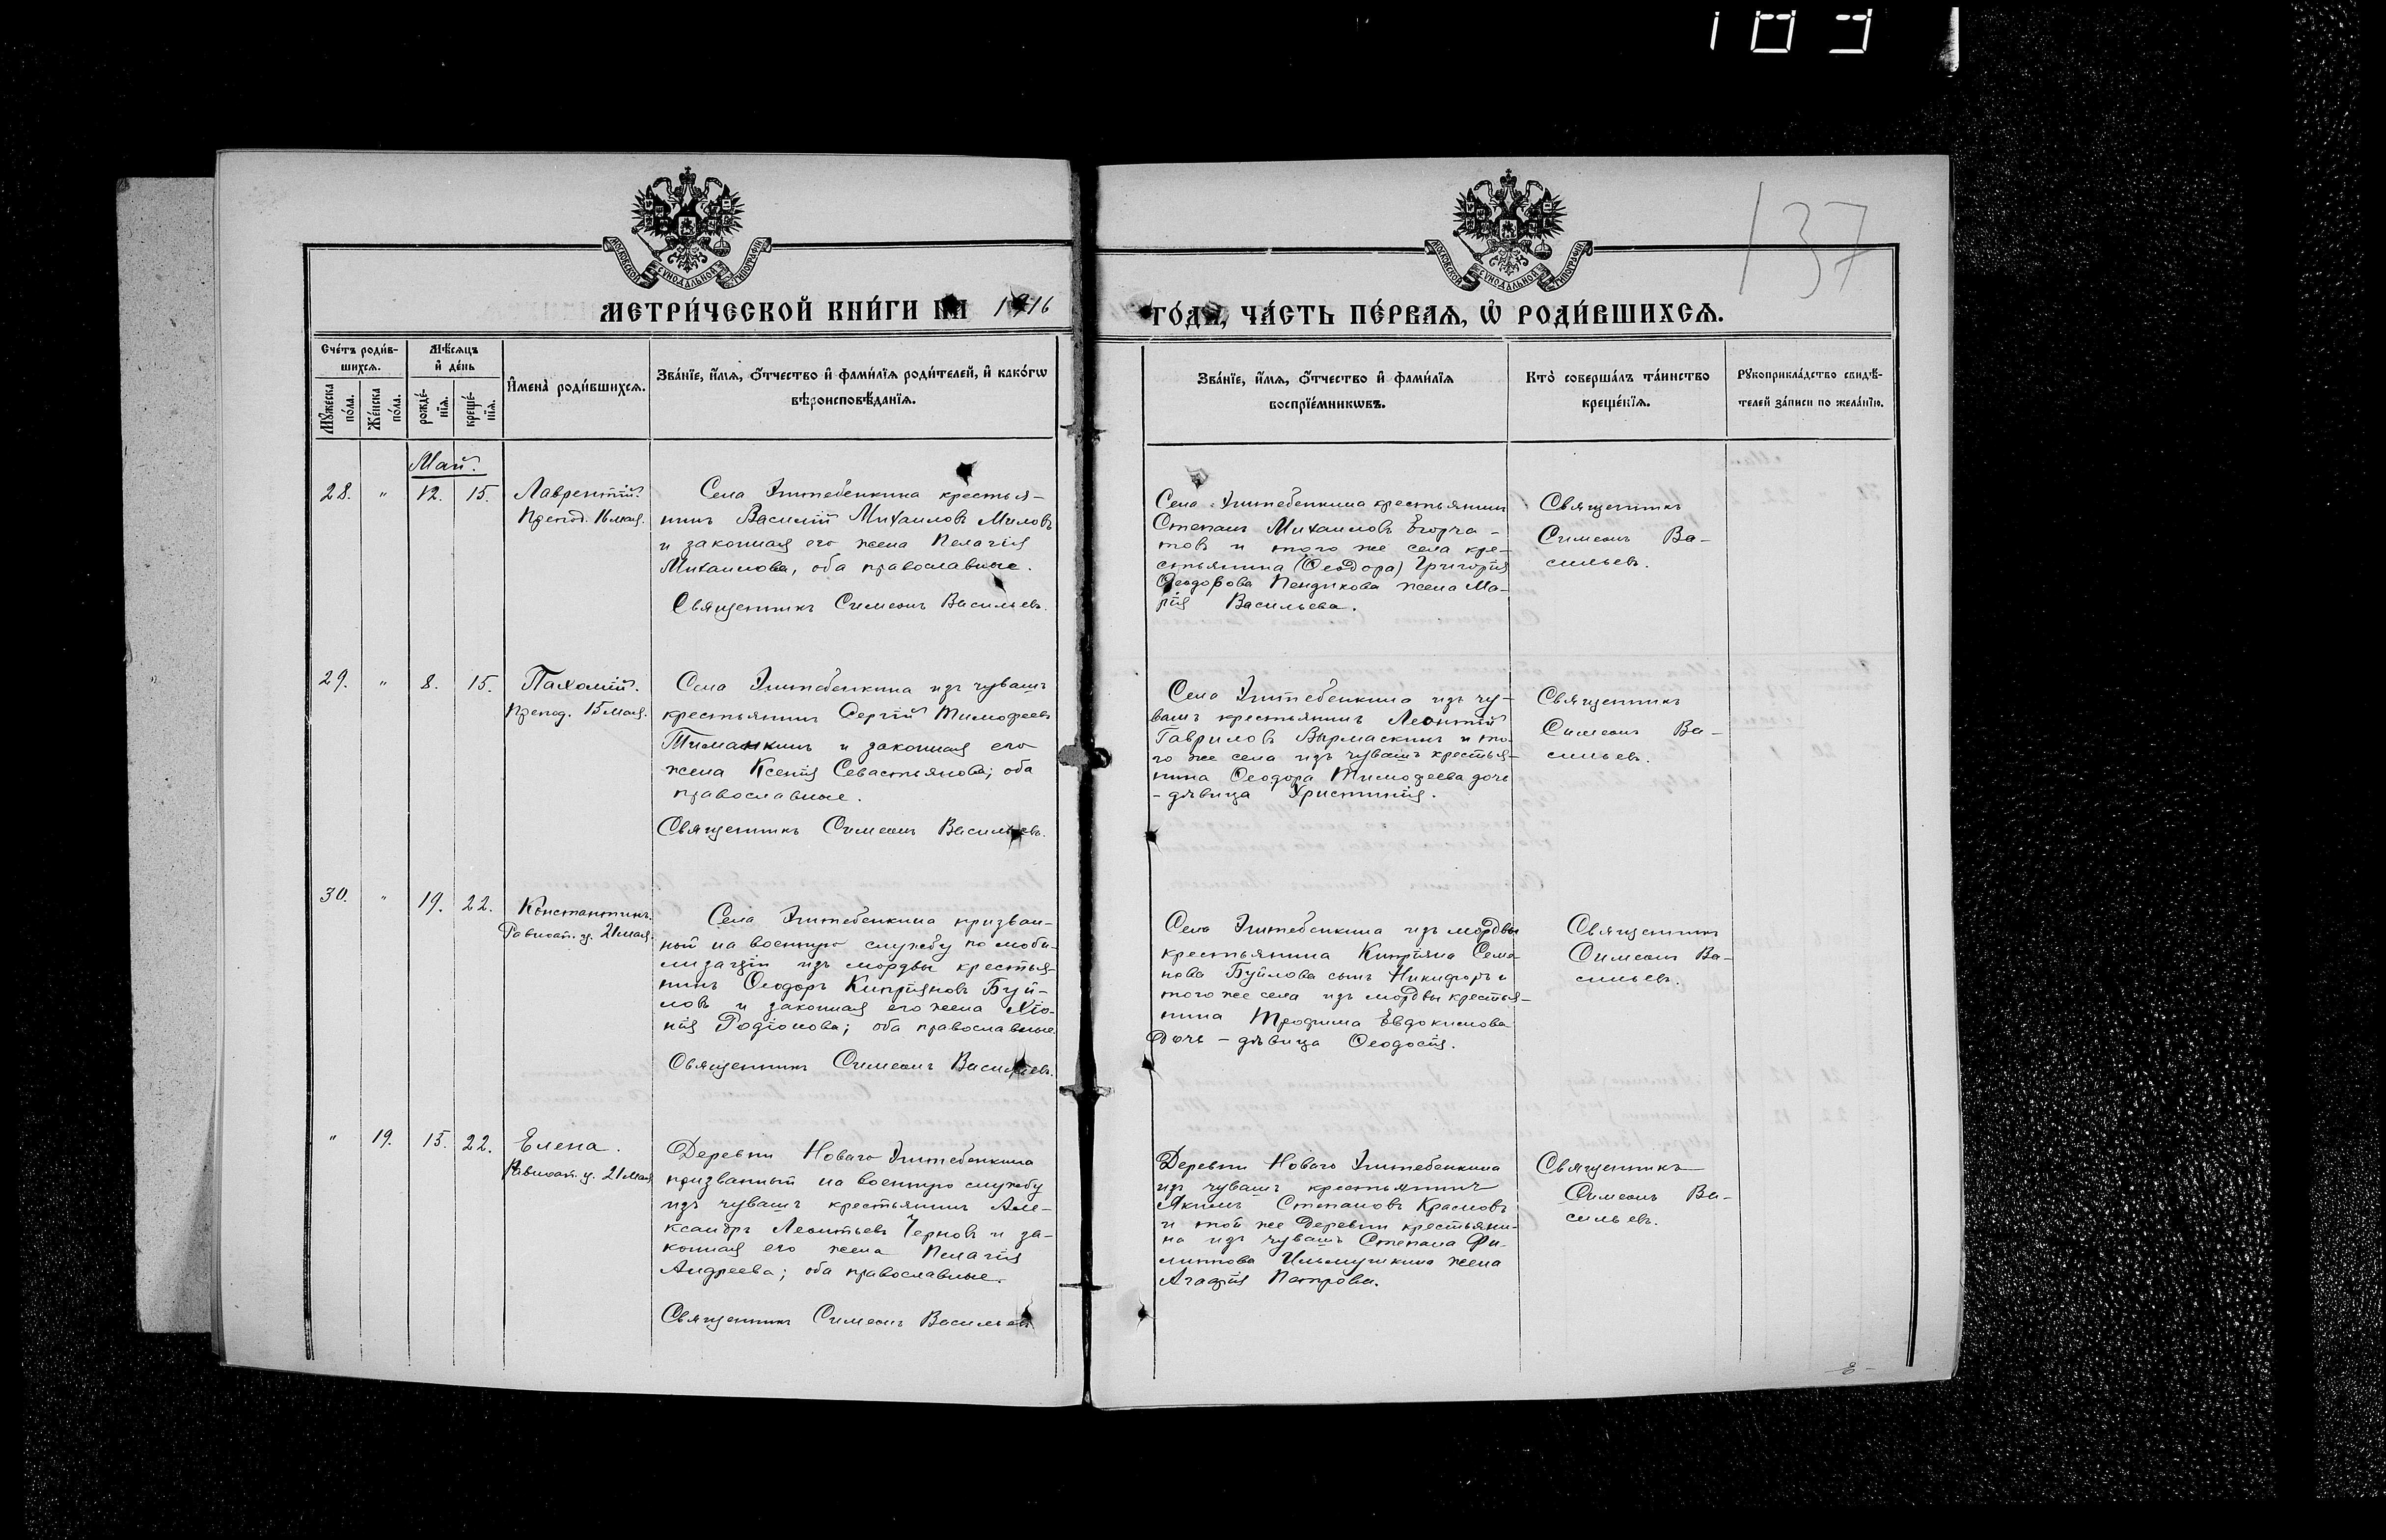 1839
137
МОСКОВСКОЙ СѴНОДАЛЬНОЙ ТИПОГРАФІИ
МОСКОВСКОЙ СѴНОДАЛЬНОЙ ТИПОГРАФІИ
МЕТРИ́ЧЕСКОЙ КНИ́ГИ НА 1916 ГО́ДА, ЧА́СТЬ ПЕ́РВАЯ, Ѡ РОДИ́ВШИХСЯ.
Сче́тъ роди́в-
шихся.
Мѣ́сяцъ
и҆ де́нь
Мꙋ́жеска по́ла.
Же́нска по́ла.
рожде́-
нїя.
креще́-
нїя.
И҆мена̀ роди́вшихся.
Зва́нїе, и҆́мя, ѻ҆́тчество и҆ фами́лїя роди́телей, и҆ како́гѡ
вѣроисповѣ́данїя.
Зва́нїе, и҆́мя, ѻ҆́тчество и҆ фами́лїя
воспрїе́мникѡвъ.
Кто̀ соверша́лъ та́инство
креще́нїя.
Рꙋкоприкла́дство свидѣ́-
телей за́писи по жела́нїю.
Май.
28. " 12. 15. Лаврентій.
Препод. 16 мая.
Села Эштебенкина крестья-
нинъ Василій Михаиловъ Миловъ
и законная его жена Пелагія
Михаилова, оба православные.
Священникъ Симеонъ Васильевъ.
Села Эштебенкина крестьянинъ
Степанъ Михаиловъ Егорча-
товъ и того же села кре-
стьянина (Ѳеодора) Григорія
Ѳеодорова Пендикова жена Ма-
рія Васильева.
Священникъ
Симеонъ Ва-
сильевъ.
29. " 8. 15. Пахомій.
Препод. 15 мая.
Села Эштебенкина изъ чувашъ
крестьянинъ Сергій Тимофеевъ
Тиманкинъ и законная его
жена Ксенія Севастьянова; оба
православные.
Священникъ Симеонъ Васильевъ.
Села Эштебенкина изъ чу-
вашъ крестьянинъ Леонтій
Гавриловъ Вырмаскинъ и то-
го же села изъ чувашъ крестья-
нина Ѳеодора Тимофеева дочь
- дѣвица Христинія.
Священникъ
Симеонъ Ва-
сильевъ.
30. " 19. 22. Константинъ.
Равноап. ц. 21 мая.
Села Эштебенкина призван-
ный на военную службу по моби-
лизаціи изъ мордвы крестья-
нинъ Ѳеодоръ Кипріяновъ Буй-
ловъ и законная его жена Хіо-
нія Родіонова; оба православные.
Священникъ Симеонъ Васильевъ.
Села Эштебенкина изъ мордвы
крестьянина Кипріяна Семе-
нова Буйлова сынъ Никифоръ и
того же села изъ мордвы крестья-
нина Трофима Евдокимова
дочь - дѣвица Ѳеодосія.
Священникъ
Симеонъ Ва-
сильевъ.
" 19. 15. 22. Елена.
Равноап. ц. 21 мая
Деревни Новаго Эштебенкина
призванный на военную службу
изъ чувашъ крестьянинъ Але-
ксандръ Леонтьевъ Черновъ и за-
конная его жена Пелагія
Андреева; оба православные.
Священникъ Симеонъ Васильевъ
Деревни Новаго Эштебенкина
изъ чувашъ крестьянинъ
Якимъ Степановъ Красновъ
и той же деревни крестьяни-
на изъ чувашъ Степана Фи-
липпова Ильмушкина жена
Агафія Петрова.
Священникъ
Симеонъ Ва-
сильевъ.